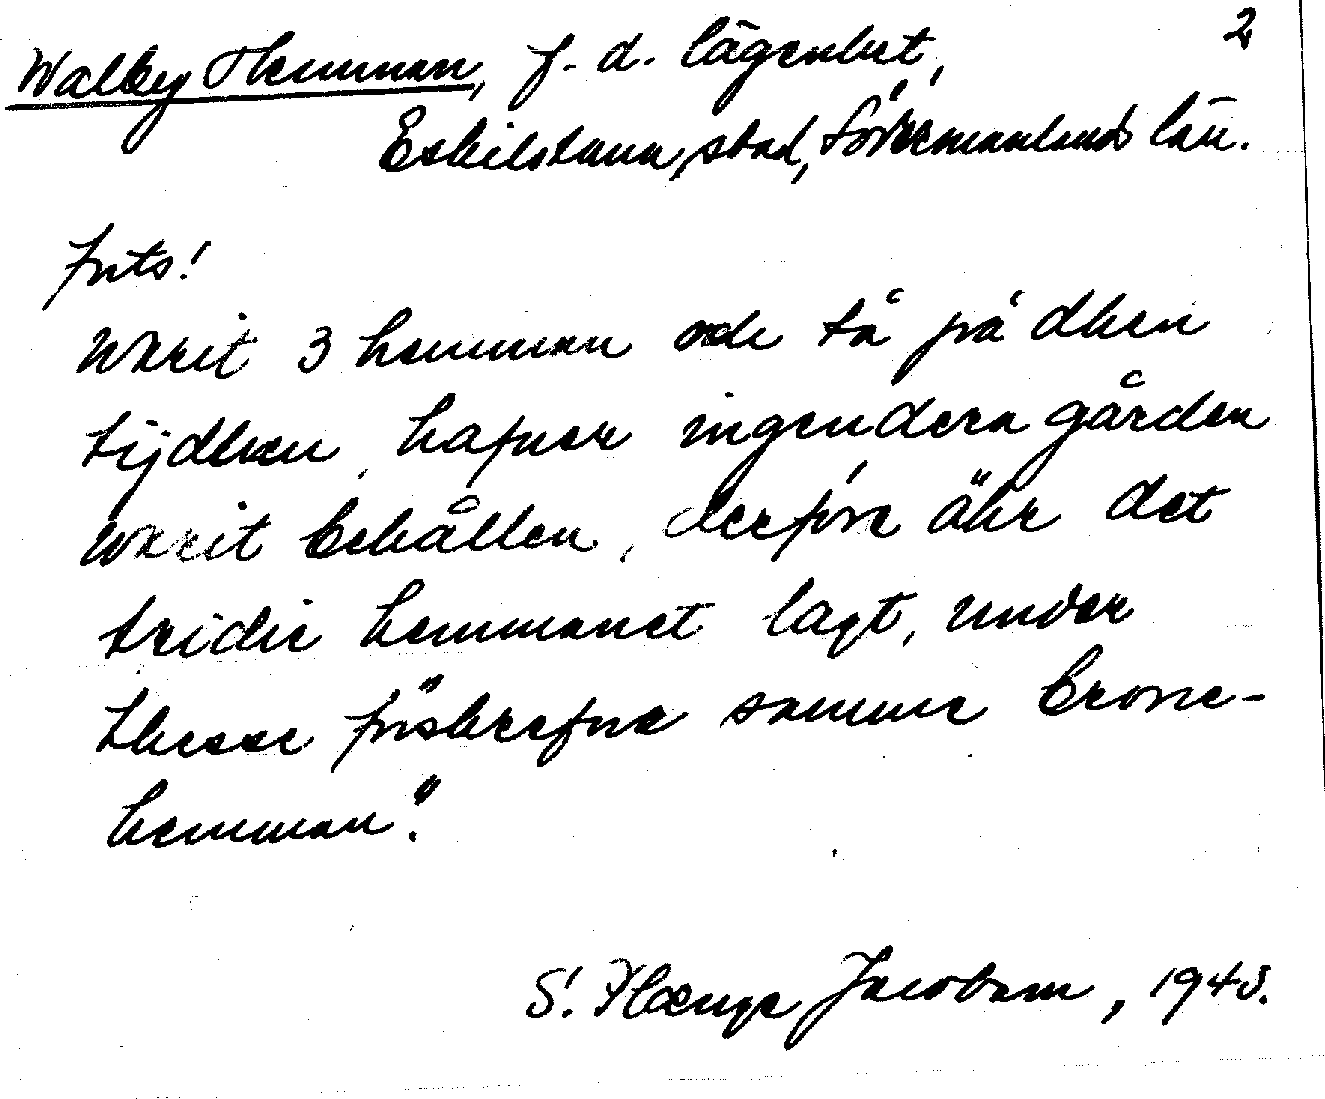 2
Walbey Hemman, f. d. lägenhet,
Eskilstuna, stad, Södermanlands län.
forts!
warit 3 hemman och så på dhen
tijdhen, hafuer ingendera gården
warit behållen, derföre ähr det
tridie hemmanet lagt, under
thesse förskrefne samme Crone-
hemman".
S. Hænge Jacobsen, 1943.